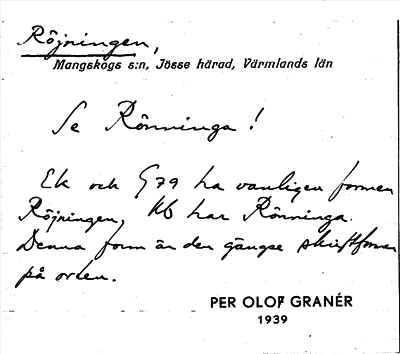 Röjningen,
Mangskogs s:n, Jösse härad, Värmlands län
Se Rönninga!
Ek och G79 ha vanligen formen
Röjningen, Kb har Rönninga.
Denna form är den gängse skriftformen
på orten.
PER OLOF GRANÉR
1939